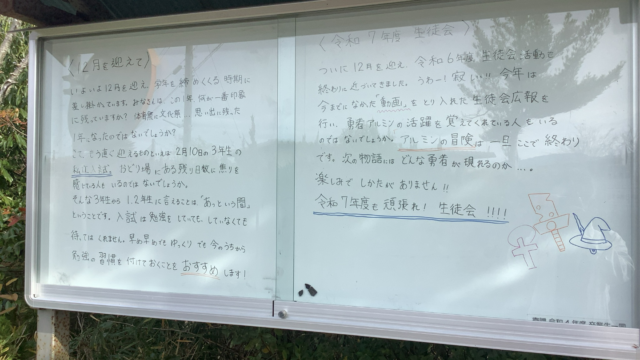 〈12月を迎えて〉
いよいよ12月を迎え、学年を締めくくる時期に
差し掛かっています。みなさんは、この1年 何が一番印象
に残っていますか? 体育祭に文化祭… 思い出に残った
1年になったのではないでしょうか?
さて、もう近く迎えるものといえば 2月10日の3年生の
私立入試。ほどり場にある残り日数に焦りを
覚えている人もいるのではないでしょうか。
そんな3年生から1,2年生に言えることは"あっという間"
ということです。入試は勉強をしていても、していなくても
待ってはくれません。早め早めでも、ゆっくりでも今のうちから
勉強の習慣を付けておくことをおすすめします!
〈令和7年度 生徒会〉
ついに12月を迎え、令和6年度 生徒会活動も
終わりに近づいてきました。うわー!寂しい!! 今年は
今までになかった「動画」をとり入れた生徒会広報を
行い、勇者アルミンの活躍を覚えてくれている人もいる
のではないでしょうか。アルミンの冒険は一旦ここで終わり
です。次の物語にはどんな勇者が現れるのか…。
楽しみでしかたがありません!!
令和7年度も頑張れ! 生徒会 !!!!